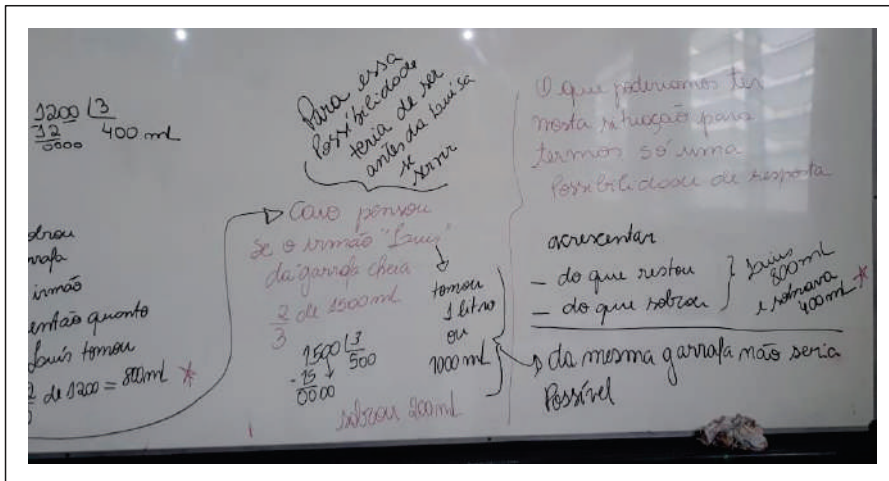 1200 | 3
12 400 ml
0000
sobrou
irmão
então quanto
Luís tomou
de 1200 = 800ml *
Para essa
Possibilidade
teria de ser
antes da Luisa
se
servir
Caio pensou
se o irmão "Luis"
da garrafa cheia
2/3 de 1500ml
tomou
1 litro
ou
1000ml
1500 | 3
- 15 500
0000
sobrou 200ml
O que poderíamos ter
nesta situação para
termos só uma
Possibilidade de resposta
acrescentar
- do que restou
- do que sobrou
Luis
800ml
e sobrava
400ml *
da mesma garrafa não seria
Possível